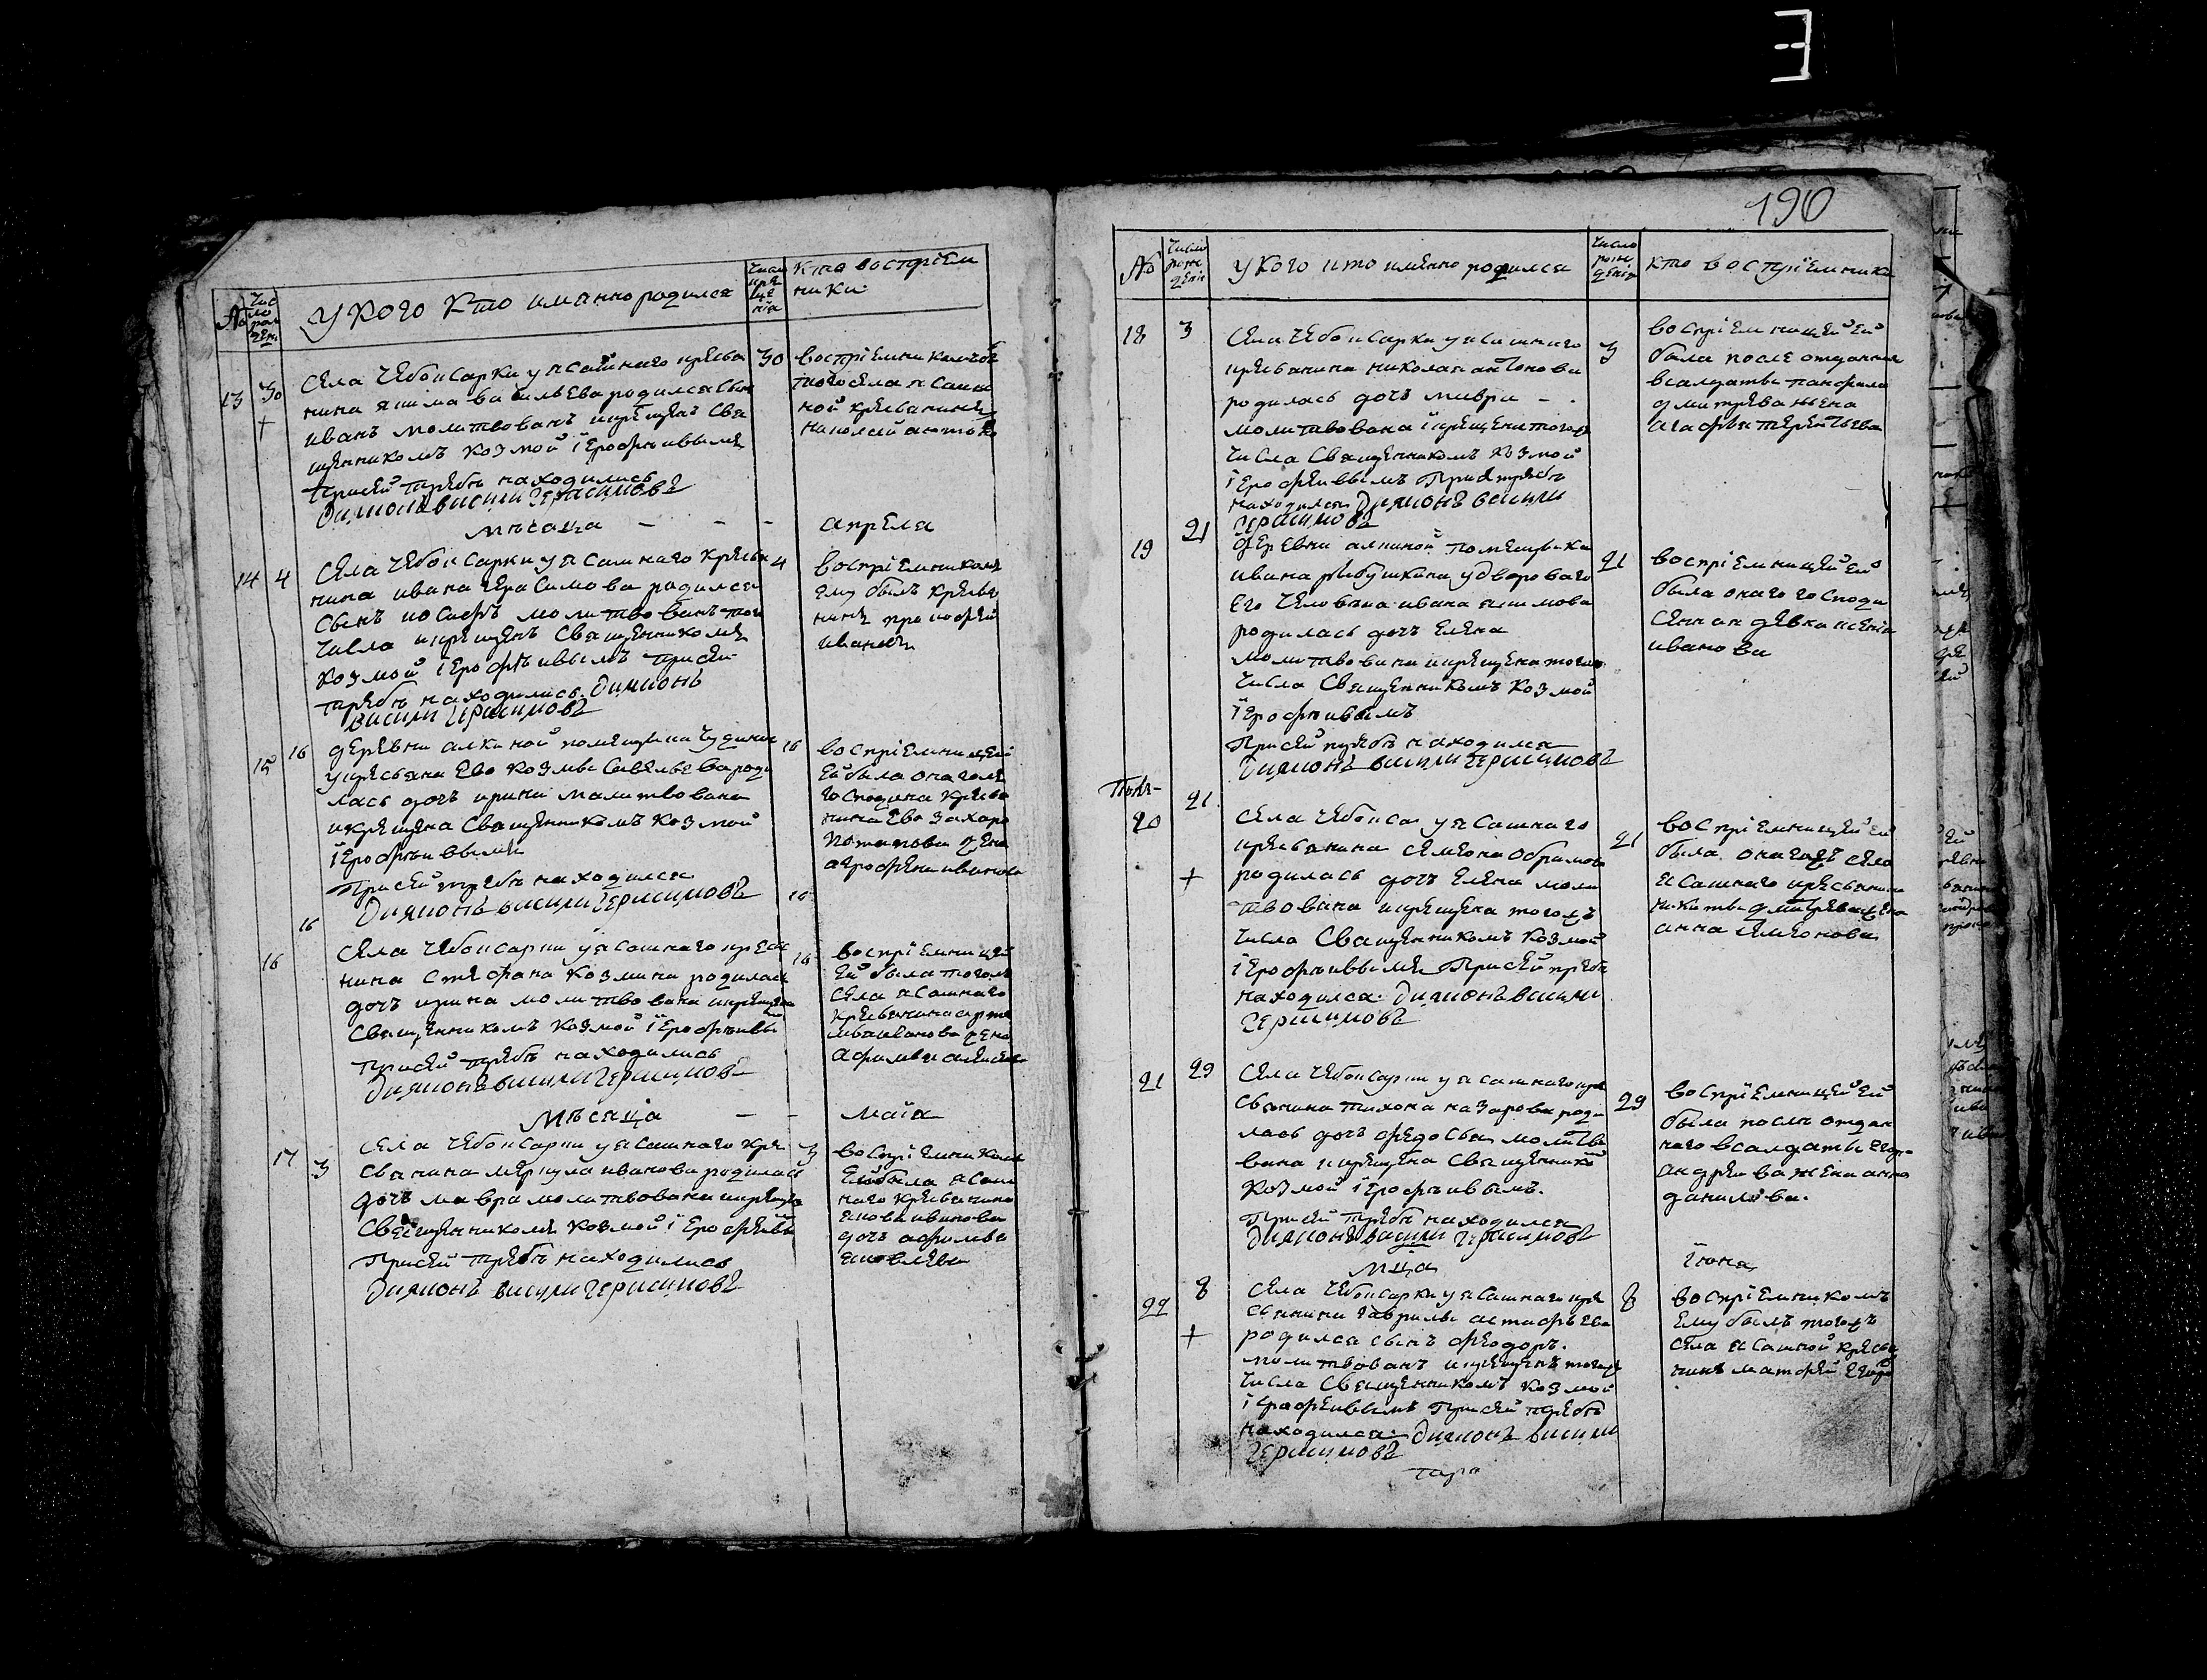 190
№
Число рождения
У кого кто именно родился
Число крещения
Кто восприемники
13
30
30
Села Чебоксарки у ясашнаго кресьянина
васильева родился сынъ
иванъ молитвованъ и крещенъ священникомъ козмой iерофѣивымъ
При сей требѣ находились
Диаконъ васили герасимовъ
восприемникомъ
тогожъ села ясашной кресьянинъ
месяца - - - апреля
14
4
4
Села Чебоксарки у ясашнаго кресьянина
ивана герасимова родился
сынъ иосифъ молитвованъ того
числа и крещенъ священникомъ
козмой iерофѣивымъ при сей
требѣ находились Диаконъ
васили герасимовъ
восприемникомъ
ему былъ кресьянинъ
прокофей
ивановъ
15
16
16
деревни алкиной помещика
у кресьяна ево козмы савельева родилась
дочь ирина молитвована
и крещена священникомъ козмой
iерофѣиввымъ
При сей требѣ находился
Диаконъ васили герасимовъ
восприемницей
ей была онагожъ
господина кресьянина
ево захара
потапова жена
агрофена иванова
16
16
16
Села Чебоксарки у ясашнаго кресьянина
стефана козмина родилась
дочь ирина молитвована и крещена
священникомъ козмой iерофѣивымъ
При сей требѣ находились
Диаконъ васили герасимовъ
восприемницей
ей была тогожъ
села ясашнаго
кресьянина
иванова жена
афимья
Месяца - - маiя
17
3
3
Села Чебоксарки у ясашнаго кресьянина
меркула иванова родилась
дочь мавра молитвована и крещена
священникомъ козмой iерофѣивымъ
При сей требѣ находились
Диаконъ васили герасимовъ
ей была ясашнаго
кресьянина
якова иванова
дочь афимья
яковлева
№
Число рождения
У кого кто именно родился
Число рождения
кто восприемники
18
3
3
Села Чебоксарки у ясашнаго
кресьянина николая антонова
родилась дочь мавра - .
молитвована i крещена тогожъ
числа священникомъ козмой
iерофеиввымъ При сей требѣ
находился Диаконъ васили
герасимовъ
восприемницей ей
была после отданнаго
в салдаты панфила
дмитрева жена
агафья терентьева
19
21
21
деревни алкиной помещика
ивана рыбушкина у двороваго
его человека ивана якимова
родилась дочь елена
молитвована и крещена тогожъ
числа священникомъ козмой
iерофѣивымъ
При сей требѣ находился
Диаконъ васили герасимовъ
восприемницей ей
была онаго господина
сенная девка ксения
иванова
20
21
21
Села Чебоксар у ясашнаго
кресьянина семиона обрамова
родилась дочь елена молитвована
и крещена тогожъ
числа священникомъ козмой
iерофѣиввымъ При сей требѣ
находился Диаконъ васили
герасимовъ
восприемницей ей
была онагожъ села
ясашнаго кресьянина
никиты дмитрева жена
анна семионова
21
29
29
Села Чебоксарки у ясашнаго кресьянина
тихона назарова родилась
дочь федосья молитвована
и крещена священникомъ
козмой iерофѣивымъ.
При сей требѣ находился
Диаконъ васили герасимовъ
восприемницей ей
была послѣ отданнаго
в салдаты егора
андреива жена анна
данилова.
мца iюня
22
8
8
Села Чебоксарки у ясашнаго кресьянина
гаврилы астафьева
родился сынъ феодоръ.
молитвованъ и крещенъ тогожъ
числа священникомъ козмой
iерофеиввымъ При сей требѣ
находился Диаконъ васили
герасимовъ
восприемникомъ
ему былъ тогожъ
села ясашной кресьянинъ
матфей